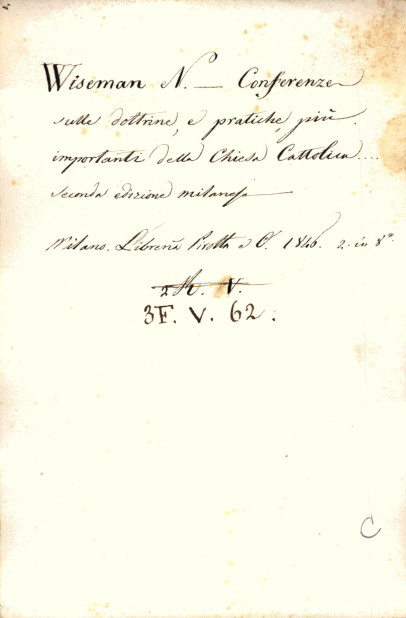 Wiseman N. — Conferenze
sulle dottrine, e pratiche più
importanti della Chiesa Cattolica....
seconda edizione milanese
Milano. Libreria Pirotta e C. 1846. 2. in 8°.
3F. V. 62.
C